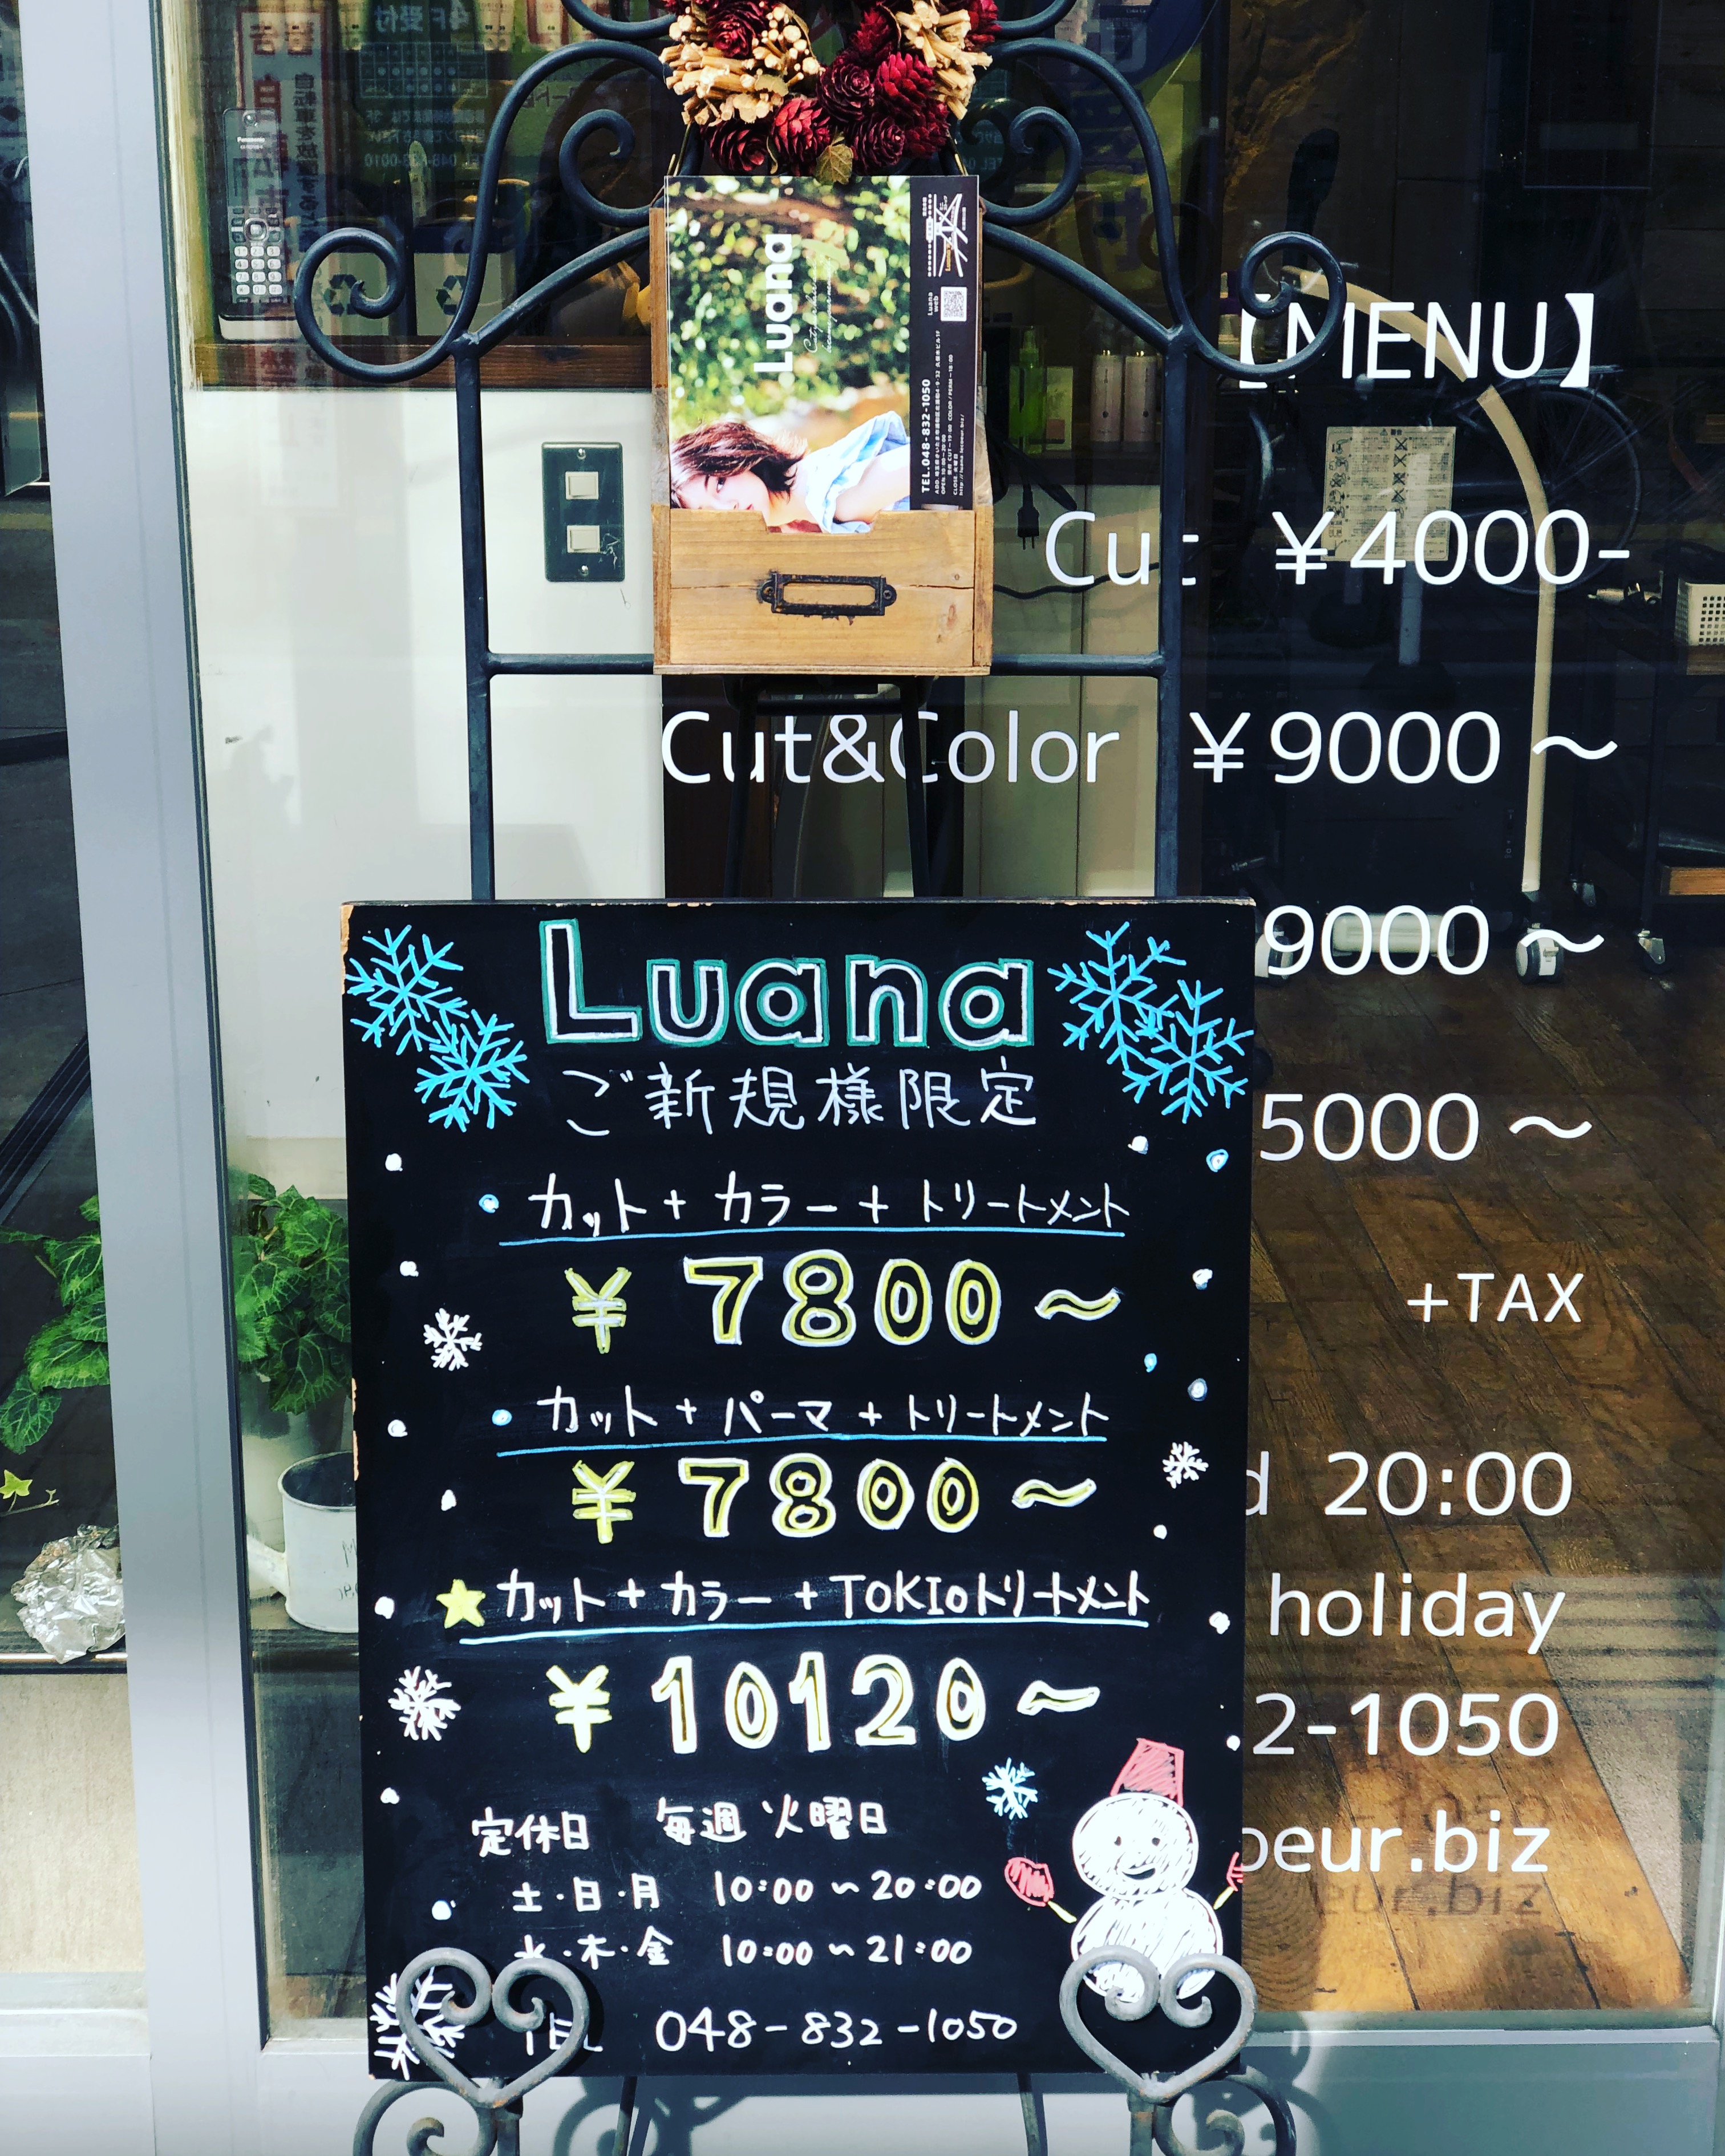 Luana
Luana
web
TEL.048-832-1050
Panasonic
【MENU】
Cut ¥4000-
Cut&Color ¥9000～
9000～
5000～
+TAX
20:00
holiday
2-1050
oeur.biz
Luana
ご新規様限定
・カット+カラー+トリートメント
¥7800～
・カット+パーマ+トリートメント
¥7800～
★カット+カラー+TOKIOトリートメント
¥10120～
定休日 毎週火曜日
土・日・月 10:00～20:00
水・木・金 10:00～21:00
TEL 048-832-1050